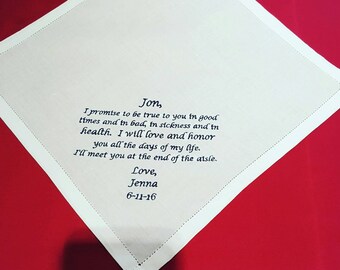 Jon,
I promise to be true to you in good
times and in bad, in sickness and in
health. I will love and honor
you all the days of my life.
I'll meet you at the end of the aisle.
Love,
Jenna
6-11-16